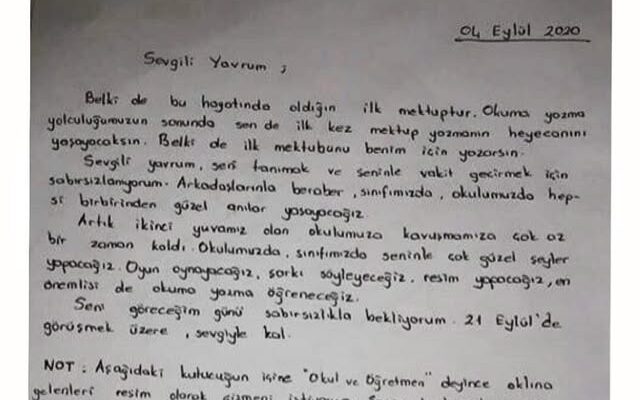 04 Eylül 2020
Sevgili Yavrum ;
Belki de bu hayatında aldığın ilk mektuptur. Okuma yazma
yolculuğumuzun sonunda sen de ilk kez mektup yazmanın heyecanını
yaşayacaksın. Belki de ilk mektubunu benim için yazarsın.
Sevgili yavrum, seni tanımak ve seninle vakit geçirmek için
sabırsızlanıyorum. Arkadaşlarınla beraber, sınıfımızda, okulumuzda hep-
si birbirinden güzel anılar yaşayacağız.
Artık ikinci yuvamız olan okulumuza kavuşmamıza çok az
bir zaman kaldı. Okulumuzda, sınıfımızda seninle çok güzel şeyler
yapacağız. Oyun oynayacağız, şarkı söyleyeceğiz, resim yapacağız, en
önemlisi de okuma yazma öğreneceğiz.
Seni göreceğim günü sabırsızlıkla bekliyorum. 21 Eylül'de
görüşmek üzere, sevgiyle kal.
NOT : Aşağıdaki kutucuğun içine "Okul ve Öğretmen" deyince aklına
gelenleri resim olarak